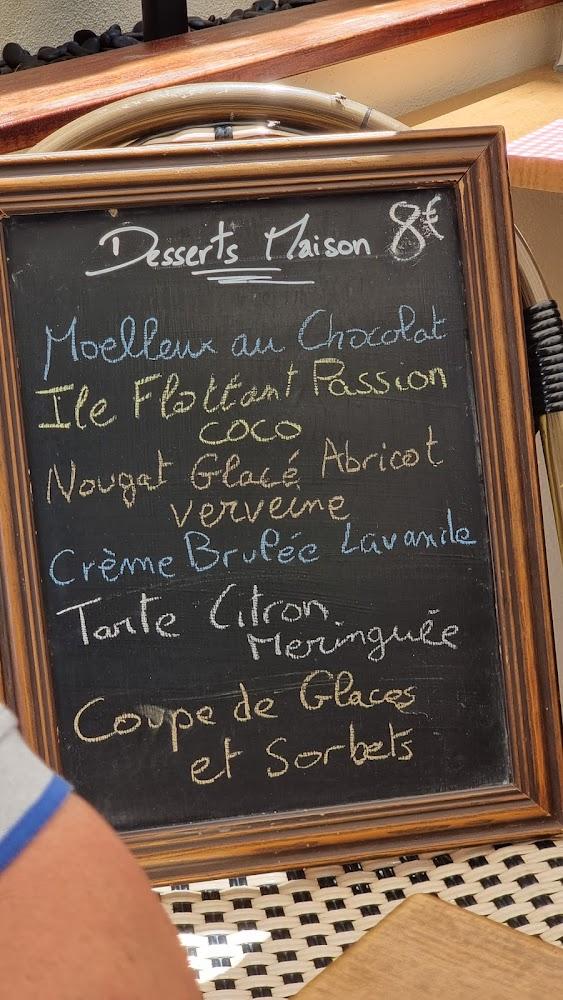 Desserts Maison 8€
Moelleux au Chocolat
Ile Flottant Passion
coco
Nougat Glacé Abricot
verveine
Crème Brulée Lavande
Tarte Citron
Meringuée
Coupe de Glaces
et Sorbets